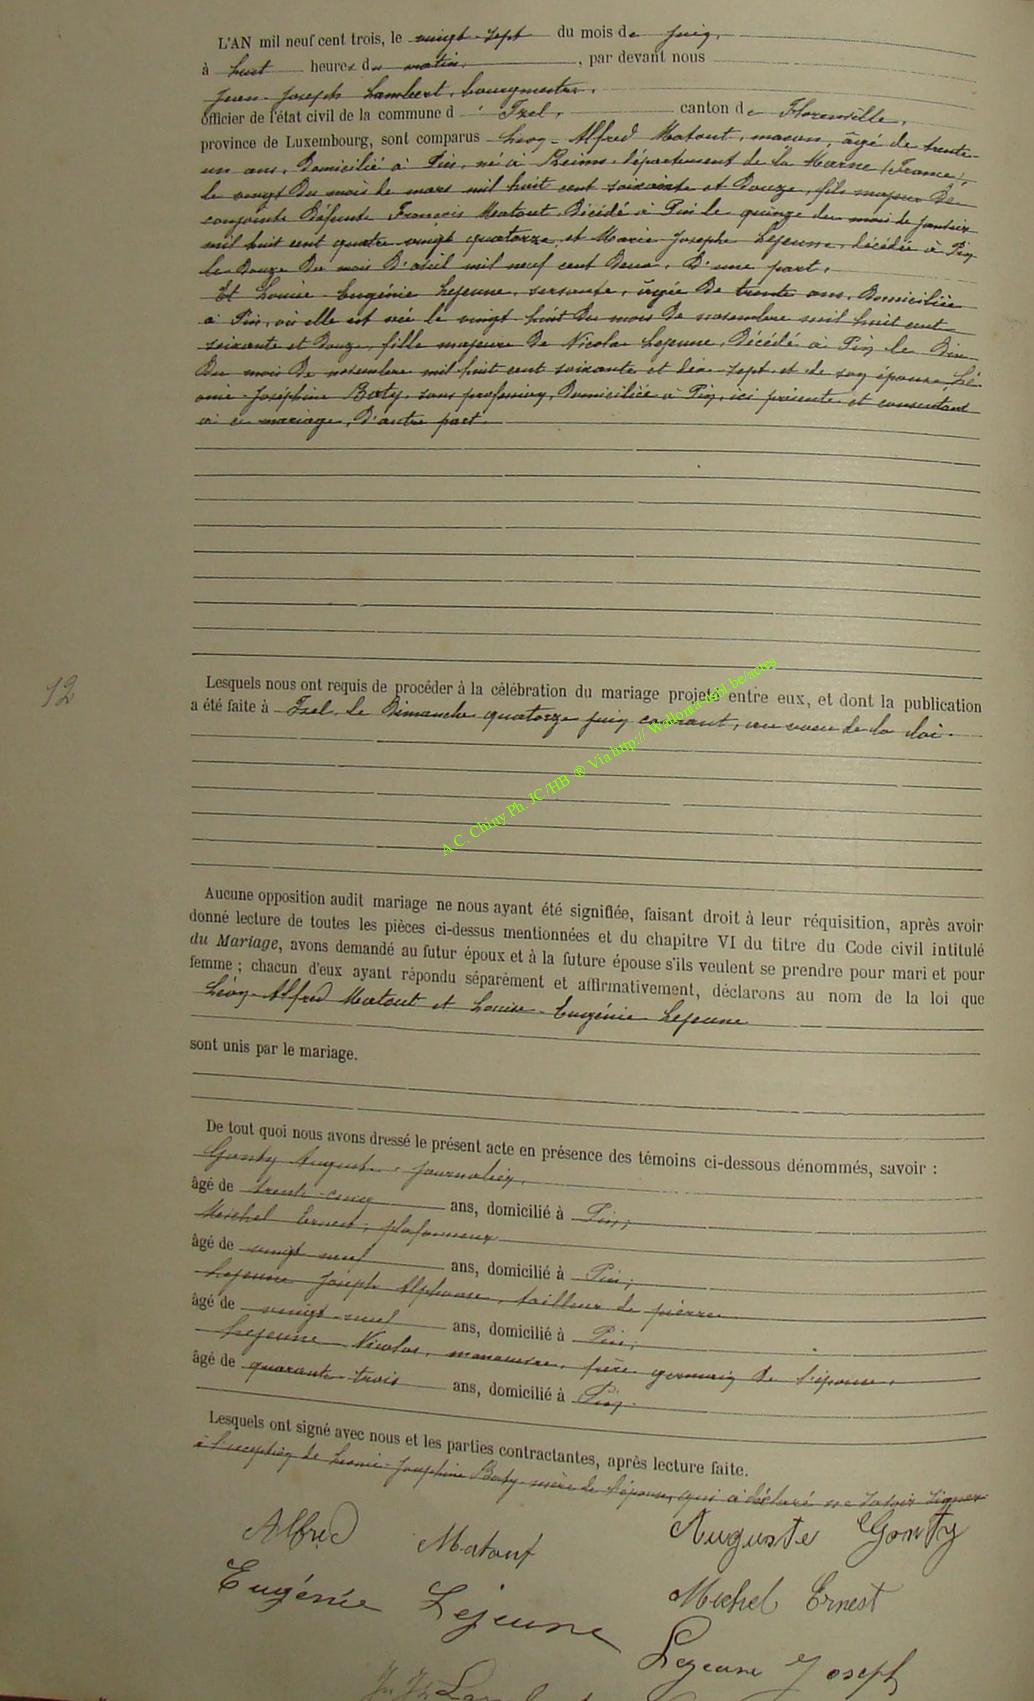 L'AN mil neuf cent trois, le vingt-sept du mois de juin,
à huit heures du matin, par devant nous
Jean-Joseph Lambert, bourgmestre,
officier de l'état civil de la commune d' Izel, canton de Florenville,
province de Luxembourg, sont comparus Léon-Alfred Matout, maçon, âgé de trente-
un ans, domicilié à Pin, né à Reims, département de la Marne (France),
le vingt du mois de mars mil huit cent soixante et douze, fils majeur de
conjoints défunts François Matout, décédé à Pin le quinze du mois de janvier
mil huit cent quatre-vingt quatorze, et Marie-Josephe Lejeune, décédée à Pin
le douze du mois d'avril mil neuf cent deux, d'une part,
Et Louise-Eugénie Lejeune, servante, âgée de trente ans, domiciliée
à Pin, où elle est née le vingt-huit du mois de novembre mil huit cent
soixante et douze, fille majeure de Nicolas Lejeune, décédé à Pin le dix
du mois de novembre mil huit cent soixante et dix-sept, et de son épouse Lé-
onie-Joséphine Baty, sans profession, domiciliée à Pin, ici présente et consentant
à ce mariage, d'autre part.
12
Lesquels nous ont requis de procéder à la célébration du mariage projeté entre eux, et dont la publication
a été faite à Izel, le Dimanche quatorze juin courant, au vœu de la loi.
A C. Chiny Ph. JC/HB ® Via http:// Wallonia-asbl.be/actes
Aucune opposition audit mariage ne nous ayant été signifiée, faisant droit à leur réquisition, après avoir
donné lecture de toutes les pièces ci-dessus mentionnées et du chapitre VI du titre du Code civil intitulé
du Mariage, avons demandé au futur époux et à la future épouse s'ils veulent se prendre pour mari et pour
femme ; chacun d'eux ayant répondu séparément et affirmativement, déclarons au nom de la loi que
Léon-Alfred Matout et Louise-Eugénie Lejeune
sont unis par le mariage.
De tout quoi nous avons dressé le présent acte en présence des témoins ci-dessous dénommés, savoir :
Gonty Auguste, journalier,
âgé de trente-cinq ans, domicilié à Pin,
Michel Ernest, plafonneur
âgé de vingt neuf ans, domicilié à Pin,
Lejeune Joseph Alphonse, tailleur de pierre
âgé de vingt-neuf ans, domicilié à Pin,
Lejeune Nicolas, manœuvre, frère germain de l'épouse,
âgé de quarante-trois ans, domicilié à Pin.
Lesquels ont signé avec nous et les parties contractantes, après lecture faite.
à l'exception de Léonie-Joséphine Baty mère de l'épouse, qui a déclaré ne savoir signer.
Alfred Matout Auguste Gonty
Eugénie Lejeune Michel Ernest
Lejeune Joseph